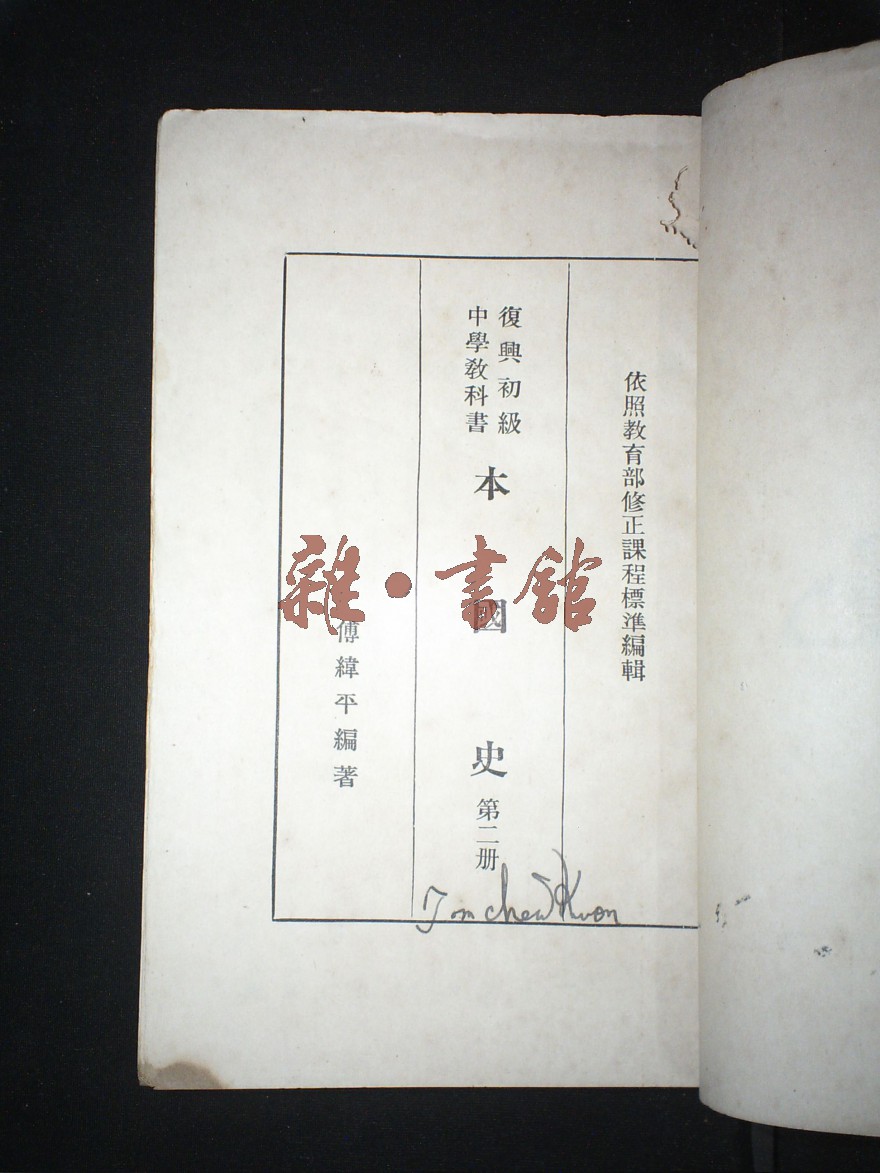 依照教育部修正課程標準編輯
復興初級
中學教科書
本國史
第二册
傅緯平編著
雜·書館
Tom chew Kwon